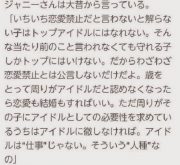 ジャニーさんは大昔から言っている。
「いちいち恋愛禁止だと言わないと解らな
い子はトップアイドルにはなれない。そん
な当たり前のこと言われなくても守れる子
しかトップにはいけない。だからわざわざ
恋愛禁止とは公言しないだけだよ。歳を
とって周りがアイドルだと認めなくなった
ら恋愛も結婚もすればいい。ただ周りがそ
の子にアイドルとしての必要性を求めてい
るうちはアイドルに徹しなければ。アイド
ルは“仕事”じゃない。そういう“人種”な
の」